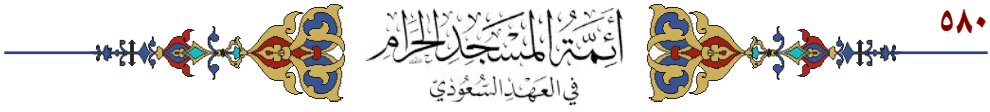 ٥٨٠
أَئِمَّةُ المَسْجِدِ الحَرَامِ
في العَهْدِ السُّعُوْدِيّ